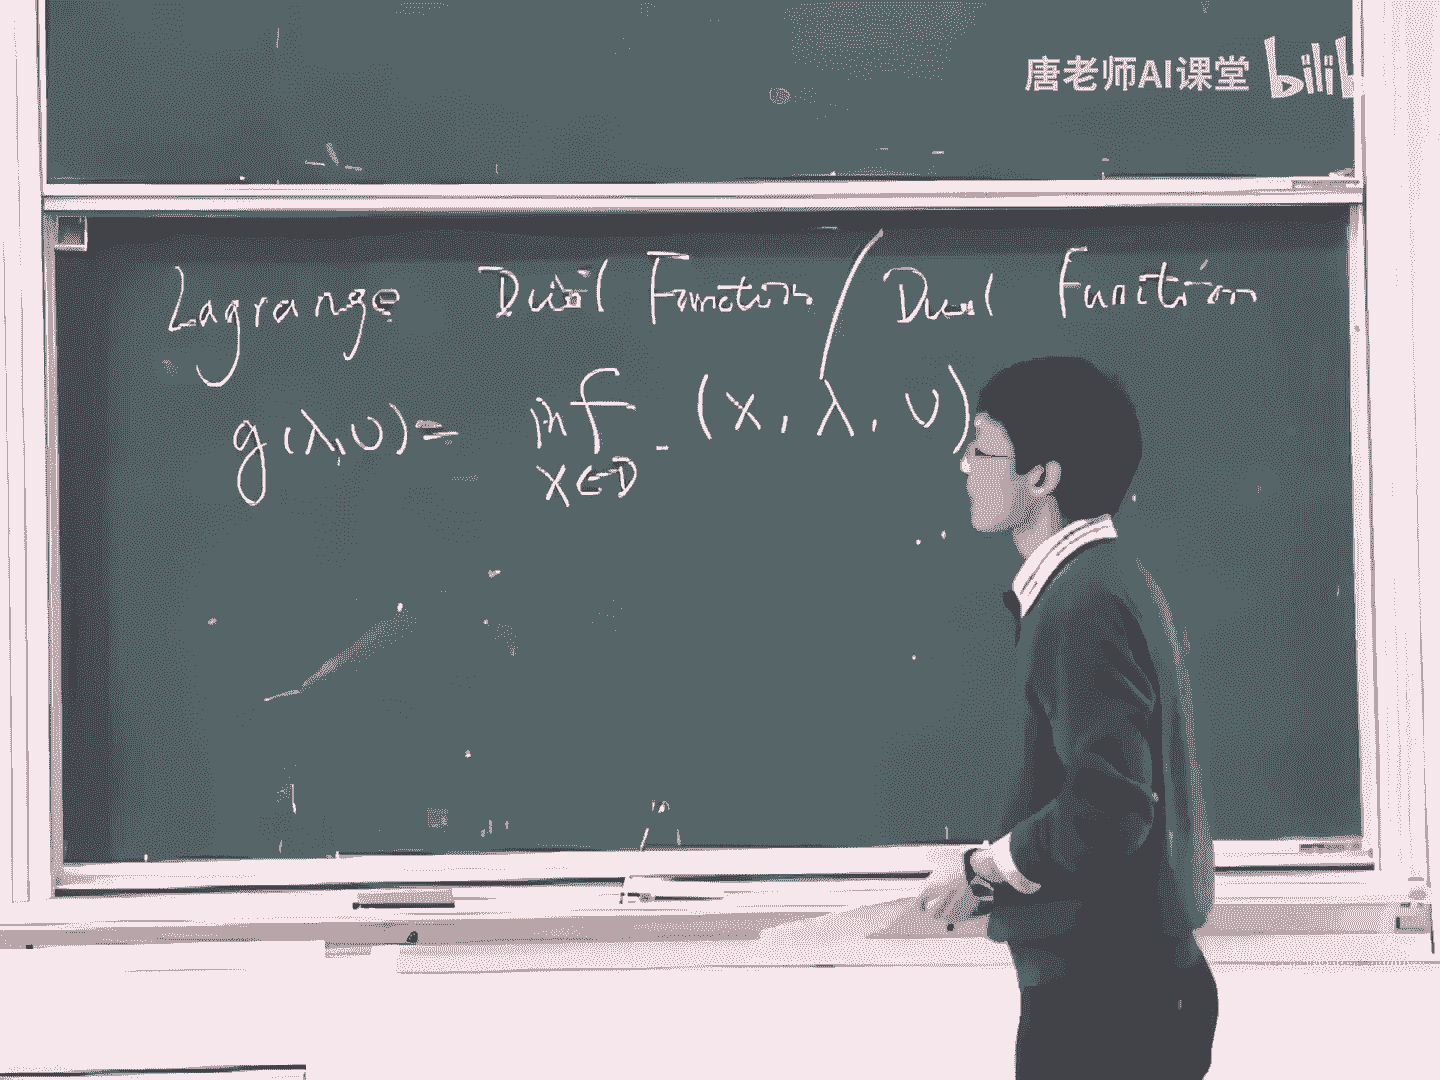 唐老师AI课堂 bilib
Lagrange Dual Function / Dual Function
g(λ,υ)= inf - (x, λ, υ)
x∈D